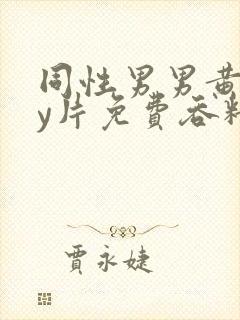 同性男男黄
y片免費吞精
賈永婕